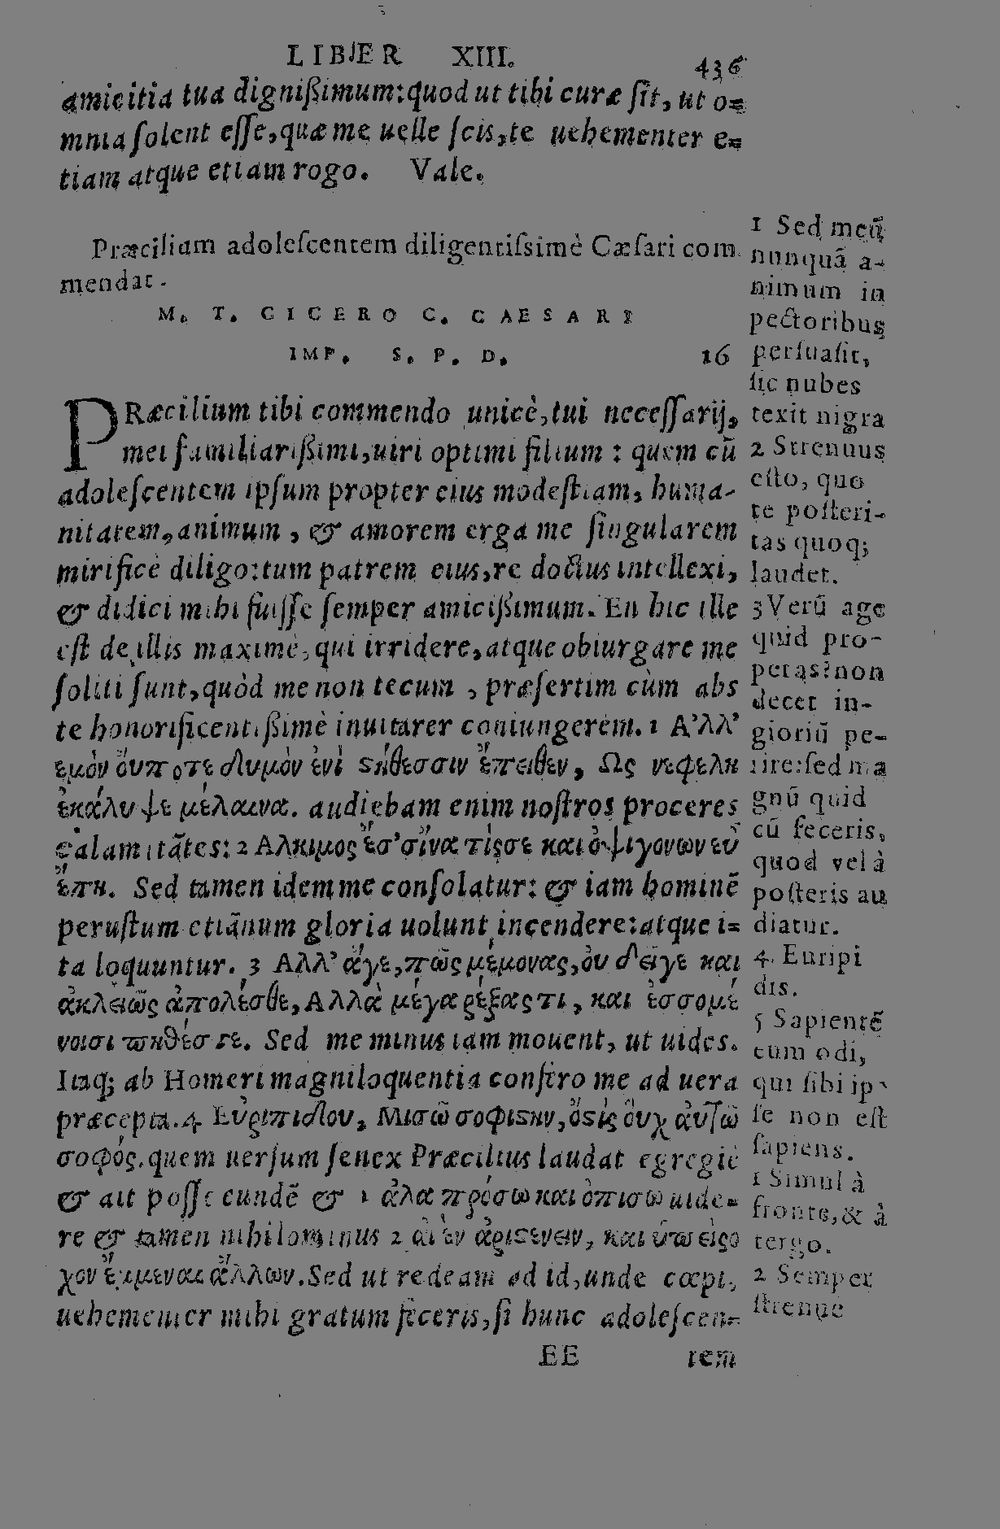 LIBER XIII. 436
amicitia tua dignißimum: quod ut tibi curæ ſit, ut o=
mnia ſolent eſſe, quæ me uelle ſcis, te uehementer e=
tiam atque etiam rogo. Vale.
Præcilium adoleſcentem diligentiſsimè Cæſari com
mendat.
M. T. CICERO C. CAESARI
IMP. S. P. D. 16
PRæcilium tibi commendo unicè, tui neceſſarij,
mei familiarißimi, uiri optimi filium : quem cū
adoleſcentem ipſum propter eius modeſtiam, huma-
nitatem, animum, & amorem erga me ſingularem
mirificè diligo: tum patrem eius, re doctus intellexi,
& didici mihi fuiſſe ſemper amicißimum. En hic ille
eſt de illis maximè, qui irridere, atque obiurgare me
ſoliti ſunt, quòd me non tecum, præſertim cùm abs
te honorificentißimè inuitarer coniungerem. 1 Α’λλ’
εμὸν ὄυποτε θυμὸν ἐνὶ ϛήθεσσιν ἔπειθεν, Ως νεφέλη
ἐκάλυψε μέλαινα. audiebam enim noſtros proceres
calamitātes: 2 Αλκιμος ἔσ’ σἵνα τίςσε και ὀψιγονων εὖ
ἔπη. Sed tamen idem me conſolatur: & iam hominē
peruſtum etiānum gloria uolunt incendere: atque i=
ta loquuntur. 3 Αλλ’ ἄγε, πῶς μέμονας, ὀυ δεῖγε και
ἀκλειῶς ἀπολέσθε, Αλλὰ μέγα ῥέξας τι, και ἐσσομέ
νοισι πυθέσγε. Sed me minus iam mouent, ut uides.
Itaq; ab Homeri magniloquentia confero me ad uera
præcepta. 4 Εὐριπιδου, Μισῶ σοφιϛην, ὅϛις ὀυχ ἀυτῶ
σοφός. quem uerſum ſenex Præcilius laudat egregiè
& ait poſſe eundē & 1 ἀλα πρόσω και ὀπισω uide=
re & tamen nihilominus 2 ἀιὲν ἀριϛευειν, και ὑπειρο
χον ἔμμεναι ἄλλων. Sed ut redeam ad id, unde cœpi,
uehementer mihi gratum feceris, ſi hunc adoleſcen=
EE tem
1 Sed meū
nunquā a-
nimum in
pectoribus
perſuaſit,
ſic nubes
texit nigra
2 Strenuus
eſto, quo
te poſteri-
tas quoq;
laudet.
3 Verū age
quid pro-
peras? non
decet in-
gloriū pe-
rire: ſed ma
gnū quid
cū feceris,
quod vel à
poſteris au
diatur.
4. Euripi
dis.
5 Sapientē
eum odi,
qui ſibi ip
ſe non eſt
ſapiens.
1 Simul à
fronte, & à
tergo.
2 Semper
ſtrenue